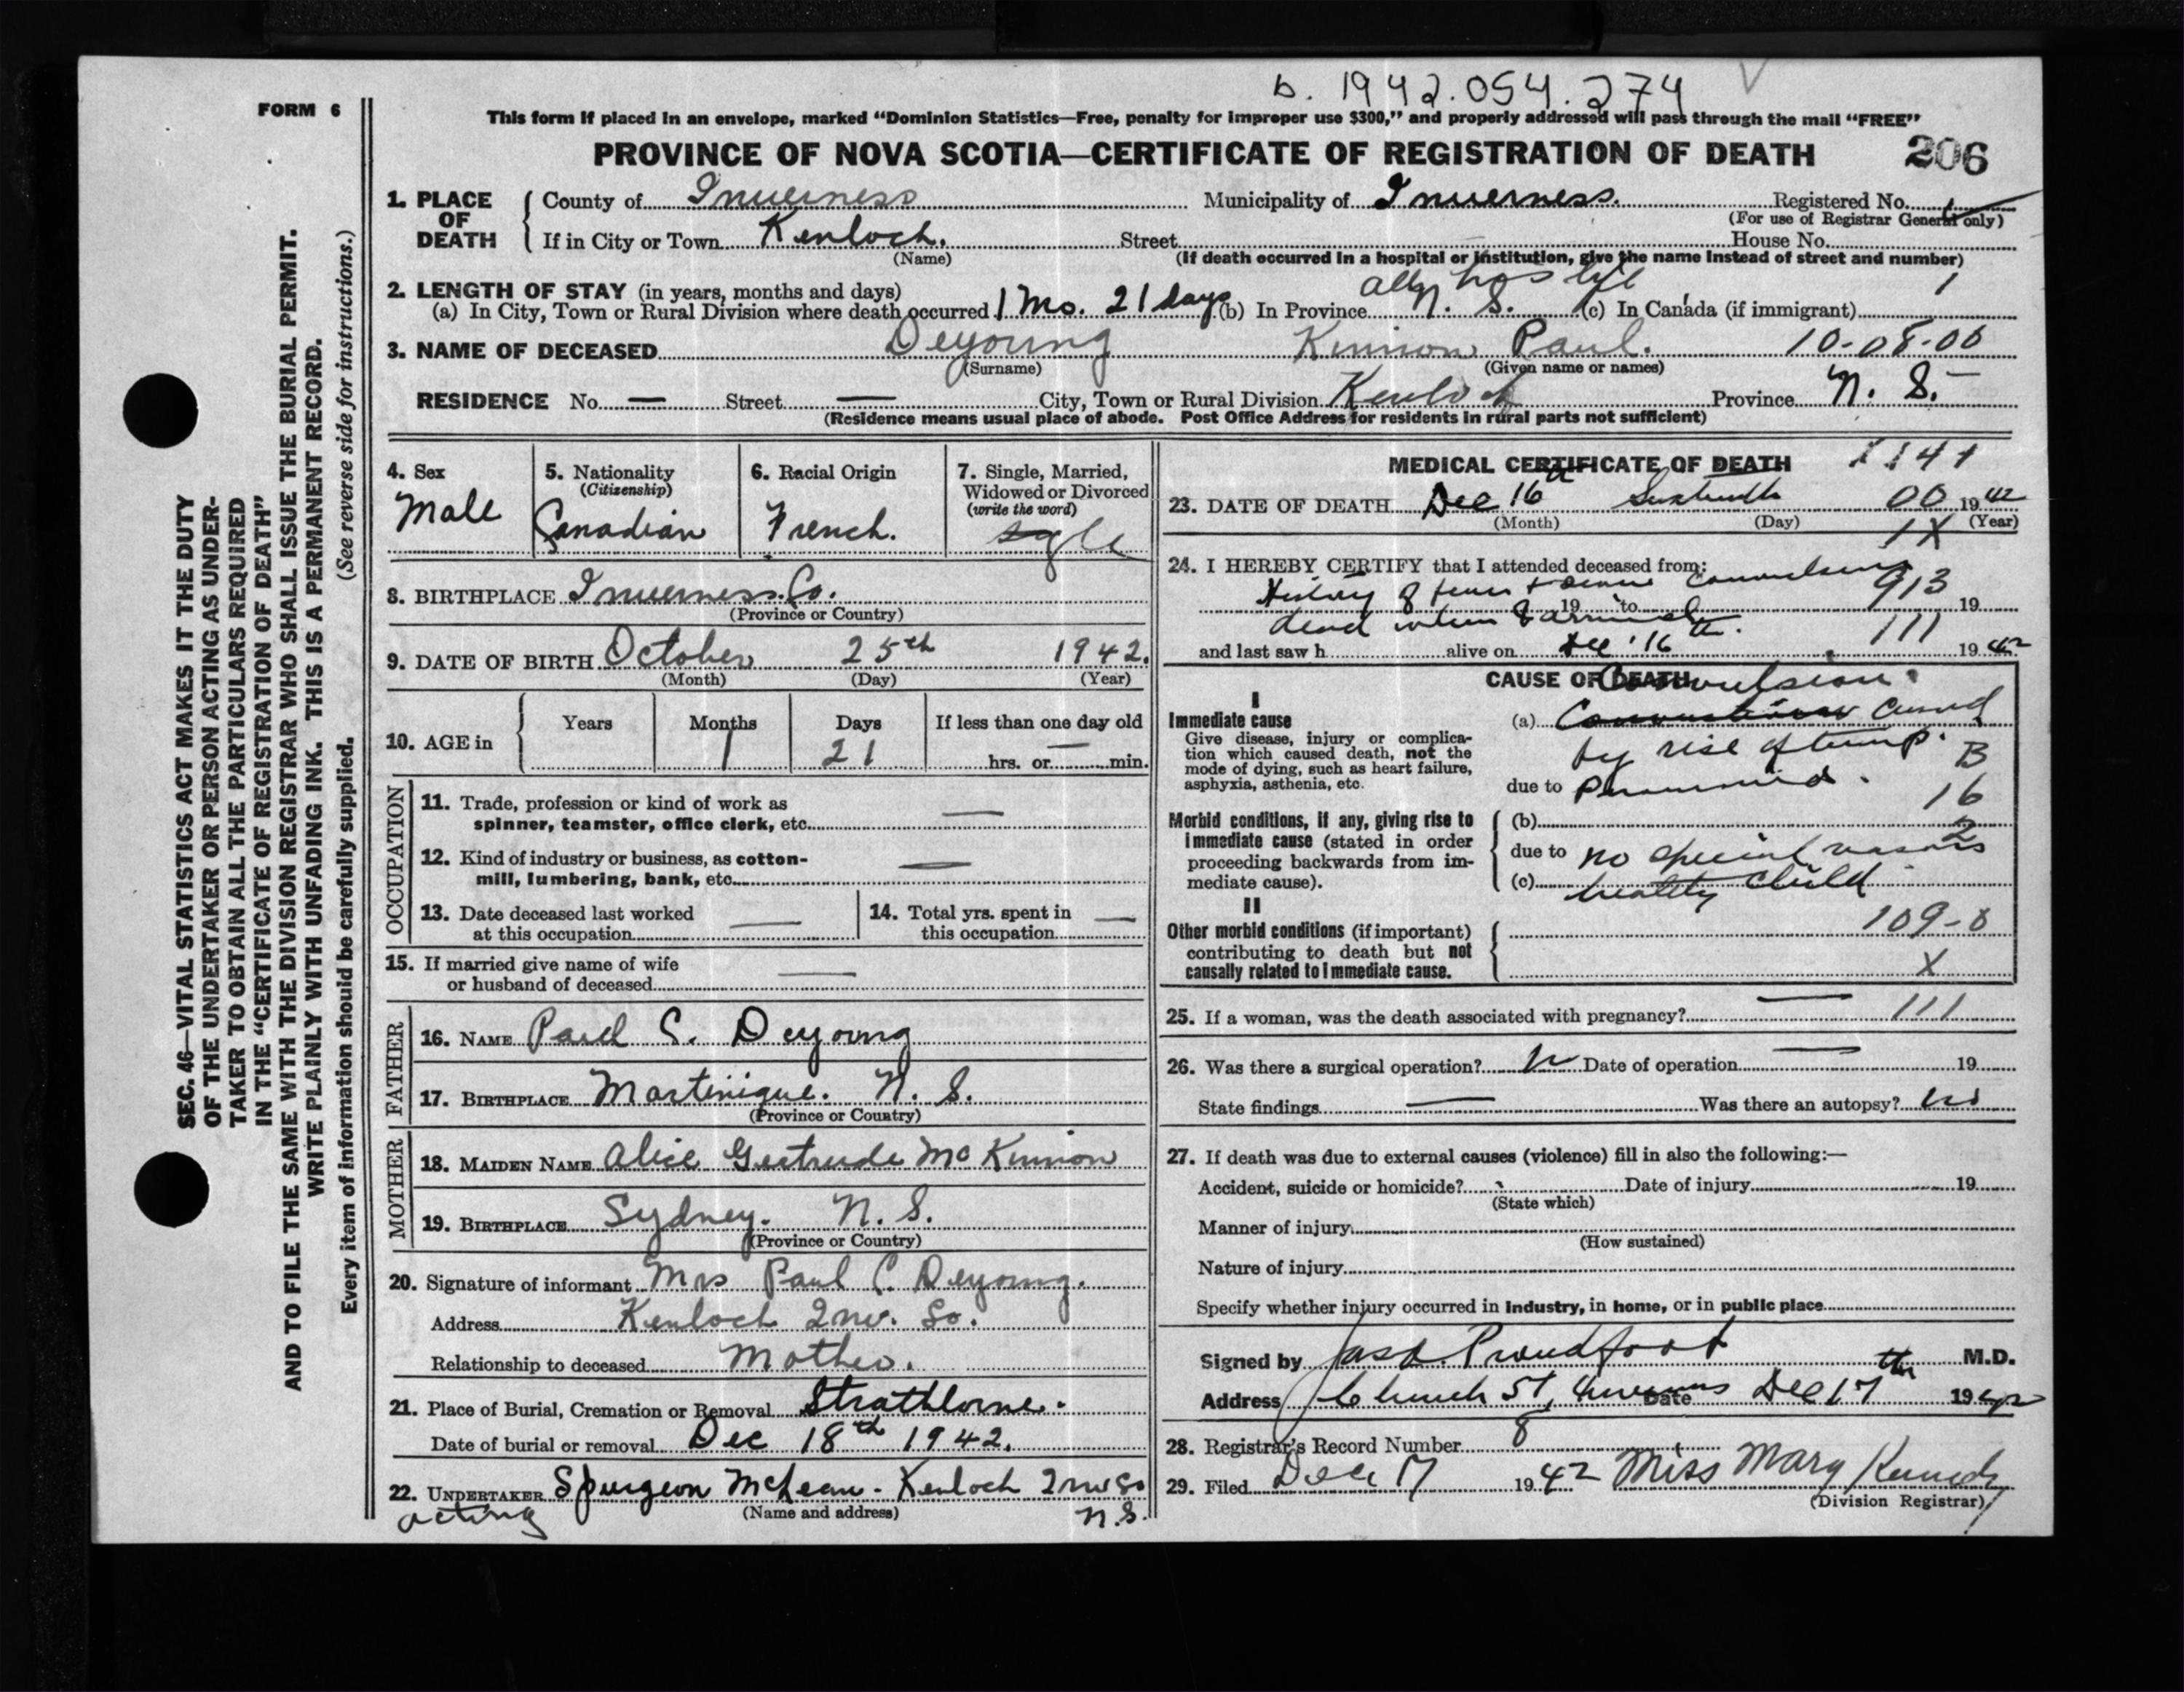 b. 1942.054.274
FORM 6
This form if placed in an envelope, marked "Dominion Statistics—Free, penalty for improper use $300," and properly addressed will pass through the mail "FREE"
PROVINCE OF NOVA SCOTIA—CERTIFICATE OF REGISTRATION OF DEATH 206
1. PLACE OF DEATH
County of Inverness Municipality of Inverness. Registered No.
(For use of Registrar General only)
If in City or Town Kenloch. Street House No.
(Name) (If death occurred in a hospital or institution, give the name instead of street and number)
2. LENGTH OF STAY (in years, months and days) all his life 1
(a) In City, Town or Rural Division where death occurred 1 Mo. 21 days (b) In Province N. S. (c) In Canada (if immigrant)
3. NAME OF DECEASED Deyoung Kinnon Paul. 10-08-00
(Surname) (Given name or names)
RESIDENCE No. — Street — City, Town or Rural Division Kenloch Province N. S.
(Residence means usual place of abode. Post Office Address for residents in rural parts not sufficient)
4. Sex
Male
5. Nationality
(Citizenship)
Canadian
6. Racial Origin
French.
7. Single, Married,
Widowed or Divorced
(write the word)
sgle
8. BIRTHPLACE Inverness. Co.
(Province or Country)
9. DATE OF BIRTH October 25th 1942.
(Month) (Day) (Year)
10. AGE in
Years Months Days If less than one day old
1 21 —
hrs. or min.
OCCUPATION
11. Trade, profession or kind of work as
spinner, teamster, office clerk, etc. —
12. Kind of industry or business, as cotton-
mill, lumbering, bank, etc. —
13. Date deceased last worked
at this occupation —
14. Total yrs. spent in
this occupation —
15. If married give name of wife
or husband of deceased —
FATHER
16. NAME Paul C. Deyoung
17. BIRTHPLACE Martinique. N. S.
(Province or Country)
MOTHER
18. MAIDEN NAME Alice Gertrude McKinnon
19. BIRTHPLACE Sydney. N. S.
(Province or Country)
20. Signature of informant Mrs Paul C. Deyoung.
Address Kenloch Inv. Co.
Relationship to deceased Mother.
21. Place of Burial, Cremation or Removal Strathlorne.
Date of burial or removal Dec 18th 1942.
22. UNDERTAKER Spurgeon McLean - Kenloch Inv Co
acting (Name and address) N.S.
MEDICAL CERTIFICATE OF DEATH
23. DATE OF DEATH Dec 16th Sixteenth 00 1942
(Month) (Day) (Year)
1X
24. I HEREBY CERTIFY that I attended deceased from:
History of fever & severe convulsions 913
19 to 19
dead when I arrived 111
and last saw h alive on Dec 16th. 1942
CAUSE OF DEATH
Convulsion
I
Immediate cause
Give disease, injury or complica-
tion which caused death, not the
mode of dying, such as heart failure,
asphyxia, asthenia, etc.
(a) caused
by rise of temp. B
due to Pneumonia. 16
Morbid conditions, if any, giving rise to
immediate cause (stated in order
proceeding backwards from im-
mediate cause).
(b) 2
due to no special reasons
(c) healthy child
II
Other morbid conditions (if important)
contributing to death but not
causally related to immediate cause.
109-0
X
25. If a woman, was the death associated with pregnancy? — 111
26. Was there a surgical operation? no Date of operation — 19
State findings — Was there an autopsy? no
27. If death was due to external causes (violence) fill in also the following:—
Accident, suicide or homicide? Date of injury 19
(State which)
Manner of injury
(How sustained)
Nature of injury
Specify whether injury occurred in industry, in home, or in public place
Signed by Jas A. Proudfoot M.D.
Address Church St, Inverness Date Dec 17th 1942
28. Registrar's Record Number 8
29. Filed Dec 17 1942 Miss Mary Kennedy
(Division Registrar)
SEC. 46—VITAL STATISTICS ACT MAKES IT THE DUTY
OF THE UNDERTAKER OR PERSON ACTING AS UNDER-
TAKER TO OBTAIN ALL THE PARTICULARS REQUIRED
IN THE "CERTIFICATE OF REGISTRATION OF DEATH"
AND TO FILE THE SAME WITH THE DIVISION REGISTRAR WHO SHALL ISSUE THE BURIAL PERMIT.
WRITE PLAINLY WITH UNFADING INK. THIS IS A PERMANENT RECORD.
Every item of information should be carefully supplied. (See reverse side for instructions.)